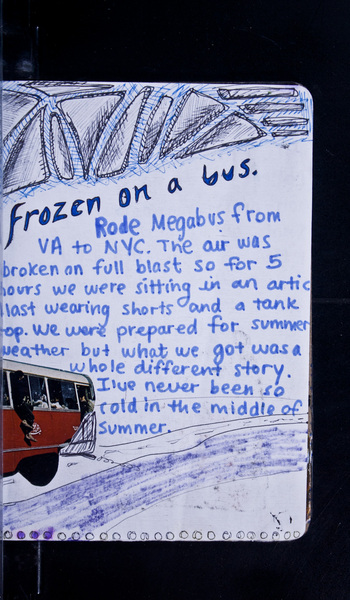 frozen on a bus.
Rode Megabus from
VA to NYC. The air was
broken on full blast so for 5
hours we were sitting in an artic
blast wearing shorts and a tank
top. We were prepared for summer
weather but what we got was a
whole different story.
I've never been so
cold in the middle of
summer.